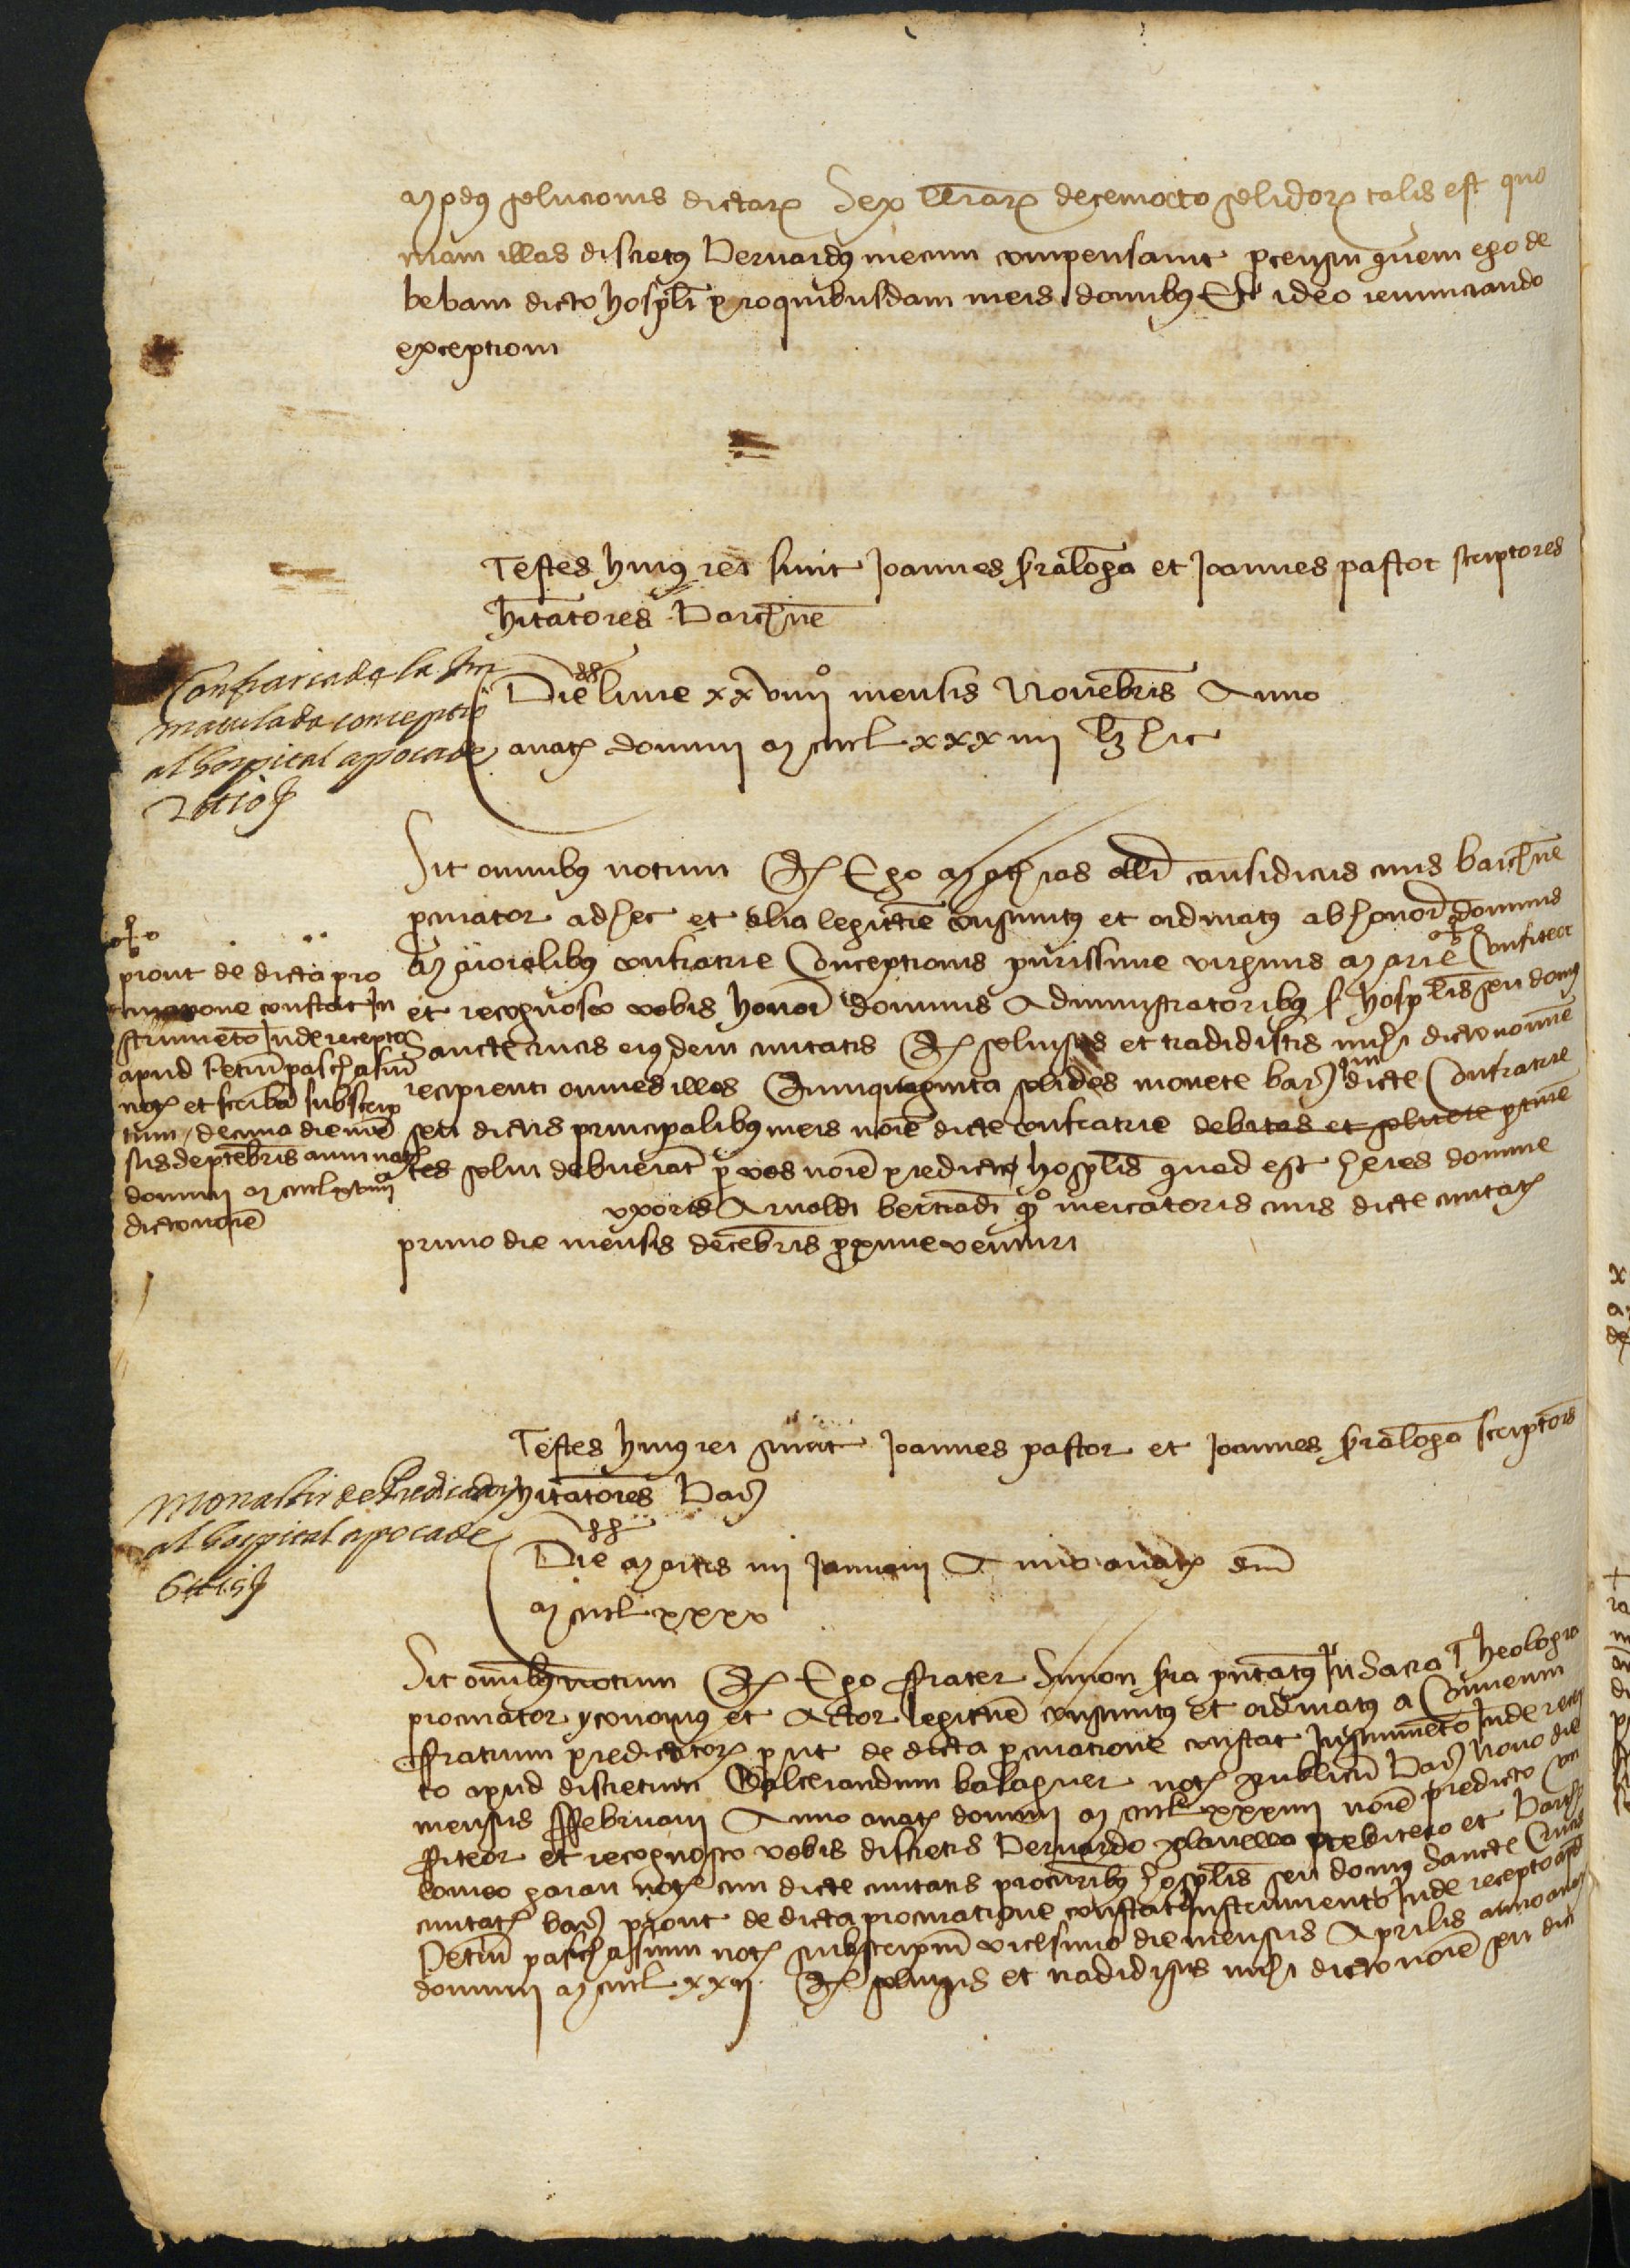 Modus solucionis dictarum Sex librarum decemocto solidorum talis est quo
niam illas discretus Bernardus mecum compensavit pro censu quem ego de
bebam dicto hospitali pro quibusdam meis domibus Et ideo renunciando
exceptioni
Testes huius rei sunt Joannes çralonga et Joannes pastor scriptores
habitatores Barchinone
Confraria de la Im
maculada conceptio
al hospital apoca de
2 ll 10 ſ
Die lune xxviiii mensis Novembris Anno
a nativitate domini MCCCCLxxxiiii
Sit omnibus notum Quod Ego Mathias causidicus civis barchinone
procurator ad hec et alia legittime constitutus et ordinatus ab honorabilibus dominis
Maioralibus confratrie Conceptionis purissime virginis Marie Confiteor
et recognosco vobis honorabilibus dominis Administratoribus hospitalis seu domus
Sancte crucis eiusdem civitatis Quod solvistis et tradidistis michi dicto nomine
recipienti omnes illos Quinquaginta solidos monete barchinone dicte Confratrie
seu dictis principalibus meis nomine dicte confratrie debitos et solvere
solvi debuerant per vos nomine predicto hospitalis quod est heres domine
uxoris Arnaldi bertrandi quondam mercatoris civis dicte civitatis
primo die mensis decembris proxime venturi
prout de dicta pro
curacione constat In
strumento Inde recepto
apud Petrum paschasium
notarium et scribam subscrip
tum / decima die men
sis septembris anni a nativitate
domini MCCCCL
dicto nomine
Testes huius rei sunt Joannes pastor et Joannes çralonga scriptores
habitatores Barchinone
Monastir de Predicadors
al hospital apoca de
Die Martis iiii Januarii Anno a nativitate domini
MCCCCLxxxx
Sit omnibus notum Quod Ego ffrater Simon In Sacra Theologia
procurator yconomus et Actor legittime constitutus et ordinatus a Conventu
ffratrum predicatorum prout de dicta procuratione constat Instrumento Inde recep
to apud discretum Galcerandum balaguer notarium publicum Barchinone Nono die
mensis ffebruarii Anno a nativitate domini MCCCCLxxxiiii nomine predicto Con
fiteor et recognosco vobis discretis Bernardo prebitero et Barth
lomeo garau notario civi dicte civitatis procuratoribus hospitalis seu domus Sancte Crucis
civitatis barchinone prout de dicta procuratione constat Instrumento Inde recepto apud
Petrum paschasium notarium subscriptum vicesimo die mensis Aprilis anno a nativitate
domini MCCCCLxxii Quod solvistis et tradidistis michi dicto nomine seu dicto